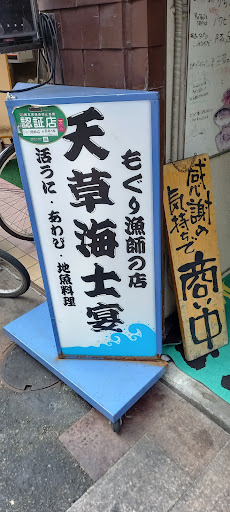 認証店
もぐり漁師の店
天草海士宴
活うに・あわび・地魚料理
感謝の
気持ちで
商い中